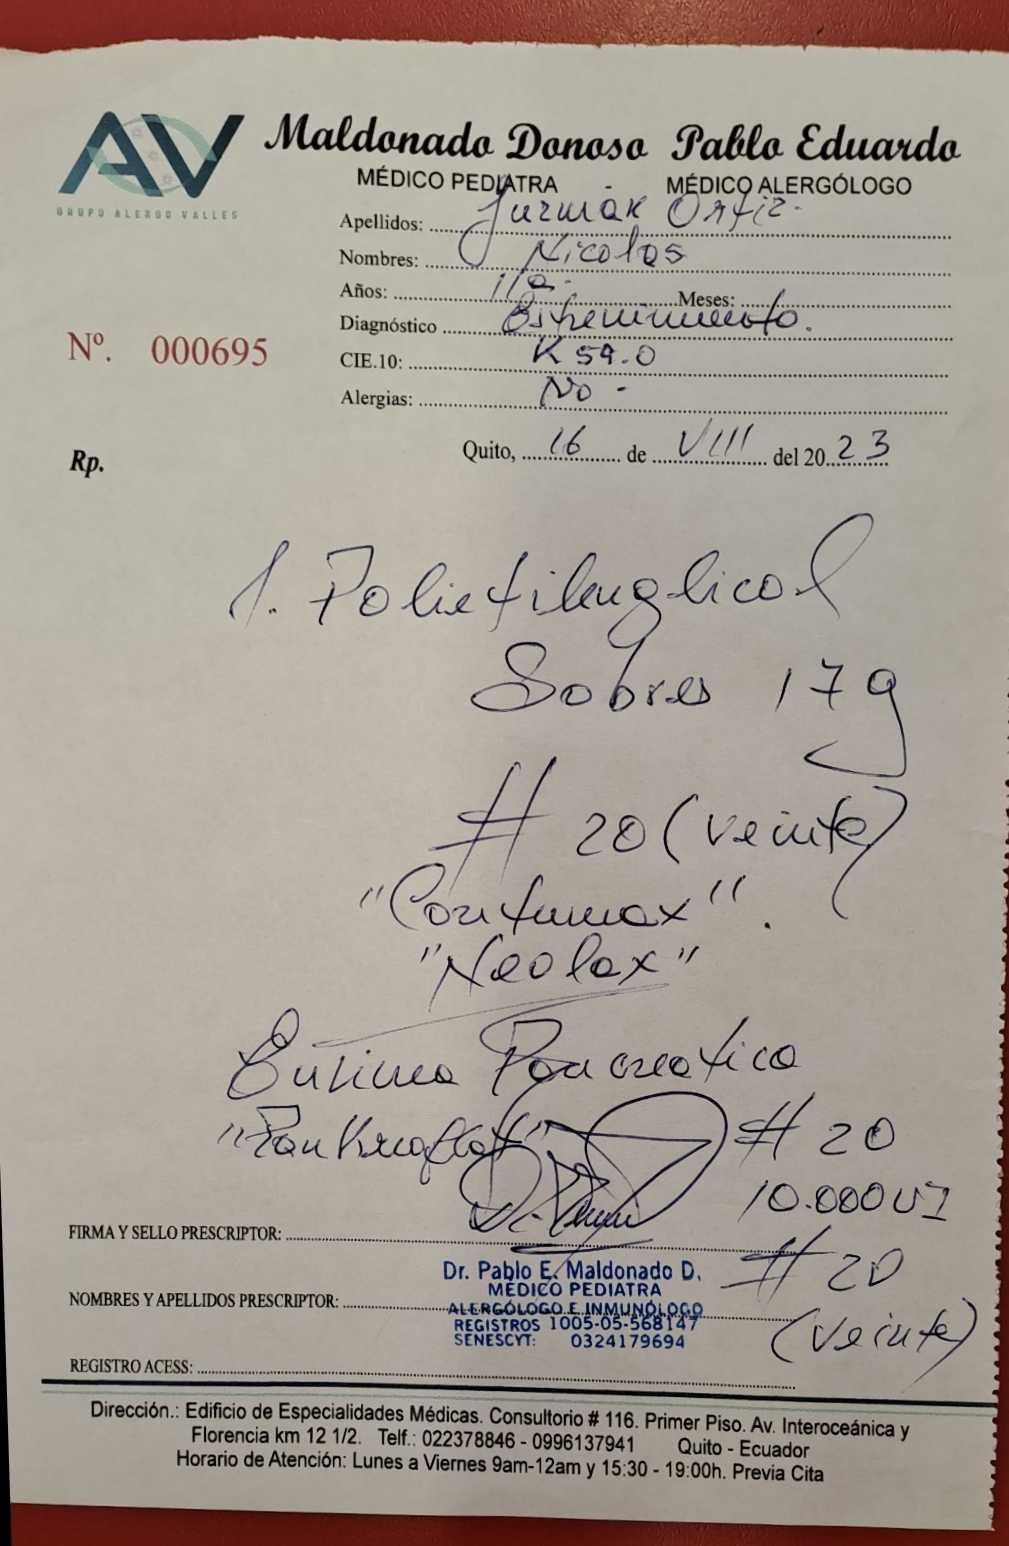 AV
GRUPO ALERGO VALLES
Maldonado Donoso Pablo Eduardo
MÉDICO PEDIATRA - MÉDICO ALERGÓLOGO
Apellidos: Jurmak Ortiz.
Nombres: Nicolas
Años: 11a. Meses:
Diagnóstico Estrenimiento.
CIE.10: K 59.0
Alergias: No -
Nº. 000695
Quito, 16 de VIII del 2023
Rp.
1. Polietilenglicol
Sobres 17g
# 20 (veinte)
"Contumax".
"Neolax"
Enzima Pancreatica
# 20
10.000 UI
FIRMA Y SELLO PRESCRIPTOR:
# 20
(veinte)
Dr. Pablo E. Maldonado D.
MÉDICO PEDIATRA
NOMBRES Y APELLIDOS PRESCRIPTOR:
ALERGÓLOGO E INMUNÓLOGO
REGISTROS 1005-05-568147
SENESCYT: 0324179694
REGISTRO ACESS:
Dirección.: Edificio de Especialidades Médicas. Consultorio # 116. Primer Piso. Av. Interoceánica y
Florencia km 12 1/2. Telf.: 022378846 - 0996137941 Quito - Ecuador
Horario de Atención: Lunes a Viernes 9am-12am y 15:30 - 19:00h. Previa Cita